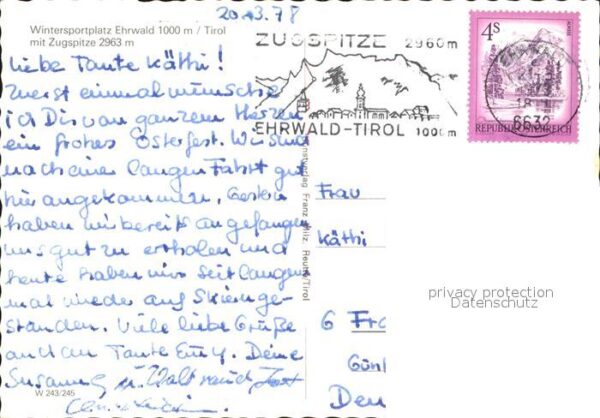 20.3.78
Wintersportplatz Ehrwald 1000 m / Tirol
mit Zugspitze 2963 m
Liebe Tante Käthi!
Zuerst einmal wünsche
ich Dir von ganzem Herzen
ein frohes Osterfest. Wir sind
nach einer langen Fahrt gut
hier angekommen. Gestern
haben wir bereits angefangen
uns gut zu erholen und
heute haben wir seit langem
mal wieder auf Skiern ge-
standen. Viele liebe Grüße
auch an Tante Emy. Deine
Susanne u.
W 243/245
ZUGSPITZE 2960m
EHRWALD-TIROL 1000m
4S
REPUBLIK ÖSTERREICH
6632
Franz Milz, Reutte/Tirol
Frau
Käthi
6 Fra
Gün
Deu
privacy protection
Datenschutz